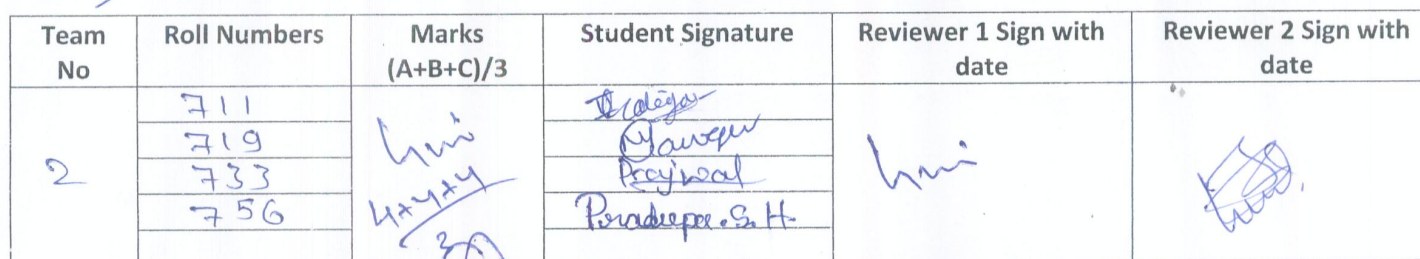 Team No
Roll Numbers
Marks (A+B+C)/3
Student Signature
Reviewer 1 Sign with date
Reviewer 2 Sign with date
2
711
719
733
756
4+4+4
3
Prajwal
Pradeepa.S.H.